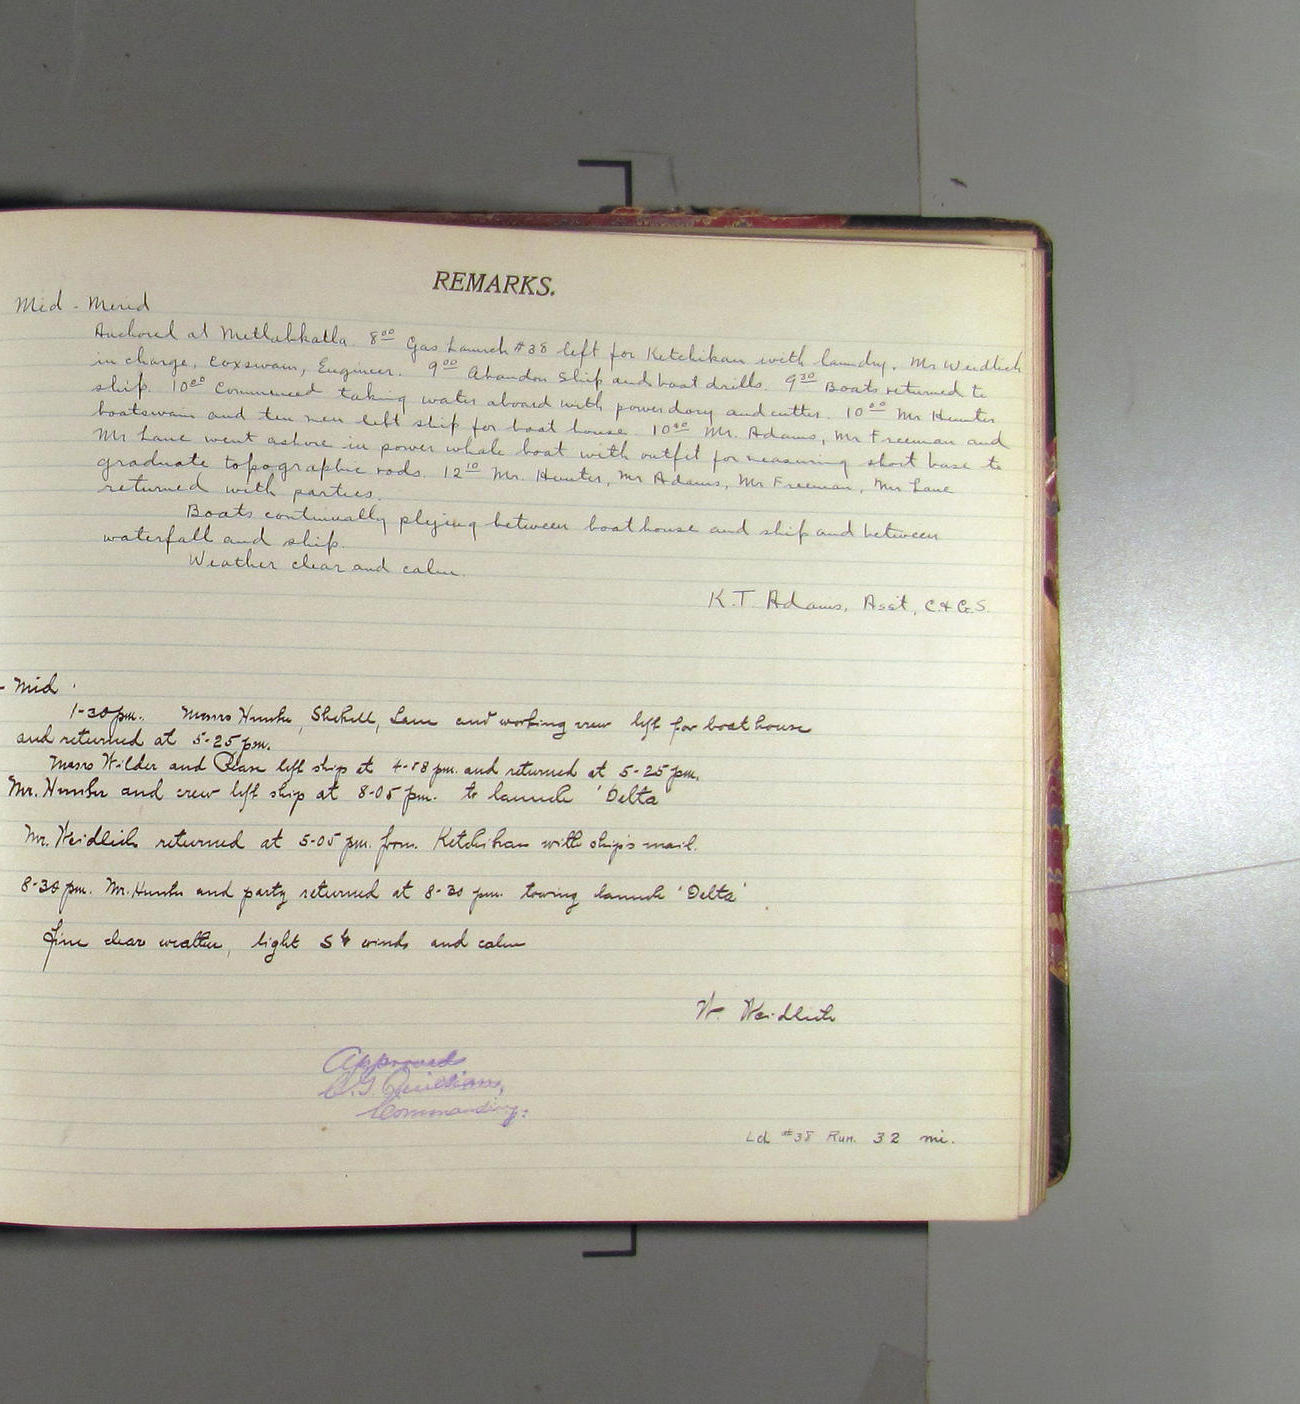 REMARKS.
Mid - Merid
Anchored at Metlahkatla. 8⁰⁰ Gas Launch #38 left for Ketchikan with laundry, Mr Weidlich
in charge, coxswain, Engineer. 9⁰⁰ Abandon Ship and boat drills. 9³⁰ Boats returned to
ship. 10⁰⁰ Commenced taking water aboard with power dory and cutter. 10⁰⁰ Mr Hunter
boatswain and ten men left ship for boat house. 10⁴⁰ Mr. Adams, Mr Freeman and
Mr Lane went ashore in power whale boat with outfit for measuring short base to
graduate topographic rods. 12¹⁰ Mr. Hunter, Mr Adams, Mr Freeman, Mr Lane
returned with parties.
Boats continually plying between boathouse and ship and between
waterfall and ship.
Weather clear and calm.
K. T. Adams, Asst, C. & G. S.
- Mid.
1-30 pm. Messrs Hunter, Lane and working crew left for boat house
and returned at 5-25 pm.
Messrs Wilder and left ship at pm. and returned at 5-25 pm.
Mr. Hunter and crew left ship at 8-05 pm. to launch 'Delta'
Mr. Weidlich returned at 5-05 pm. from Ketchikan with ship's mail.
8-30 pm. Mr. Hunter and party returned at 8-30 pm. towing launch 'Delta'
Fine clear weather, light winds and calm
W. Weidlich
Approved
Commanding.
#38 Run. 32 mi.